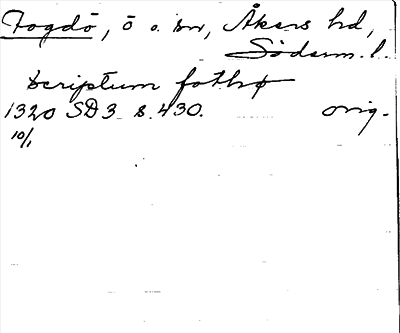 Fogdö, ö o. sn, Åkers hd,
Söderm. l.
Scriptum fothø
1320 SD 3 s. 430. orig.
10/1